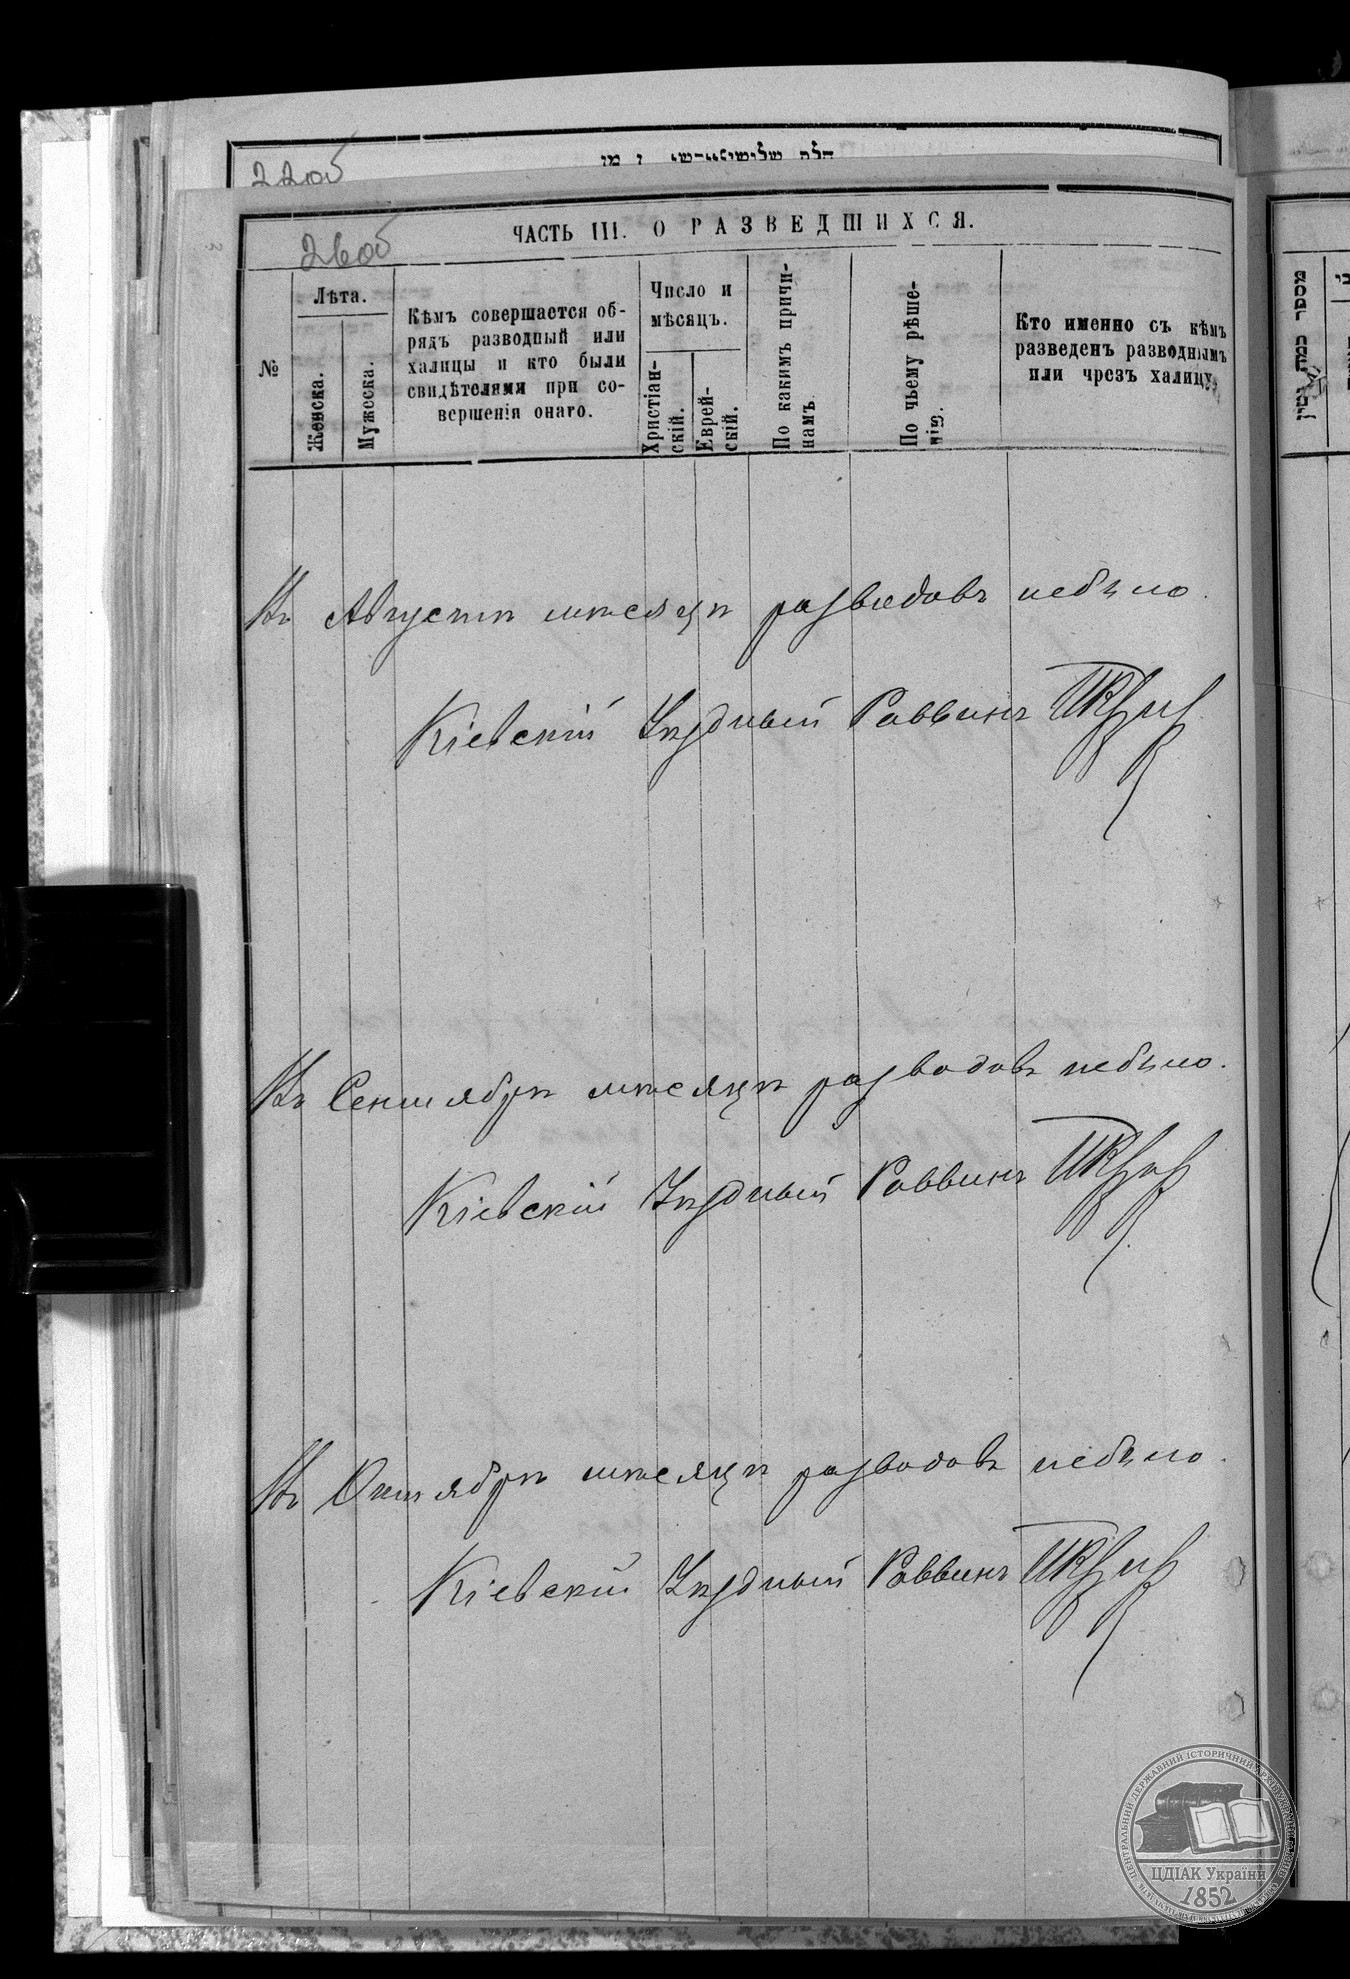 22об
26об
ЧАСТЬ III. О РАЗВЕДШИХСЯ.
№
Лѣта.
Женска.
Мужеска.
Кѣмъ совершается об-
рядъ разводный или
халицы и кто были
свидѣтелями при со-
вершенія онаго.
Число и
мѣсяцъ.
Христіан-
скій.
Еврей-
скій.
По какимъ причи-
намъ.
По чьему рѣше-
нію.
Кто именно съ кѣмъ
разведенъ разводнымъ
или чрезъ халицу.
Въ Августѣ мѣсяцѣ разводовъ небыло.
Кіевскій Уѣздный Раввинъ
Въ Сентябрѣ мѣсяцѣ разводовъ небыло.
Кіевскій Уѣздный Раввинъ
Въ Октябрѣ мѣсяцѣ разводовъ небыло.
Кіевскій Уѣздный Раввинъ
מספר כמה גטין
ЦЕНТРАЛЬНИЙ ДЕРЖАВНИЙ ІСТОРИЧНИЙ АРХІВ УКРАЇНИ
ЦДІАК України
1852